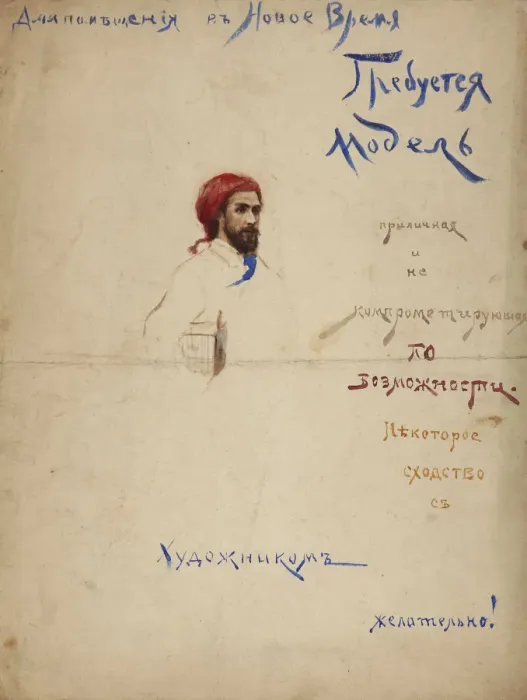 Для помѣщенія въ Новое Время
Требуется
Модель
приличная
и
не
компрометирующая
по
возможности.
Нѣкоторое
сходство
съ
Художникомъ
желательно!